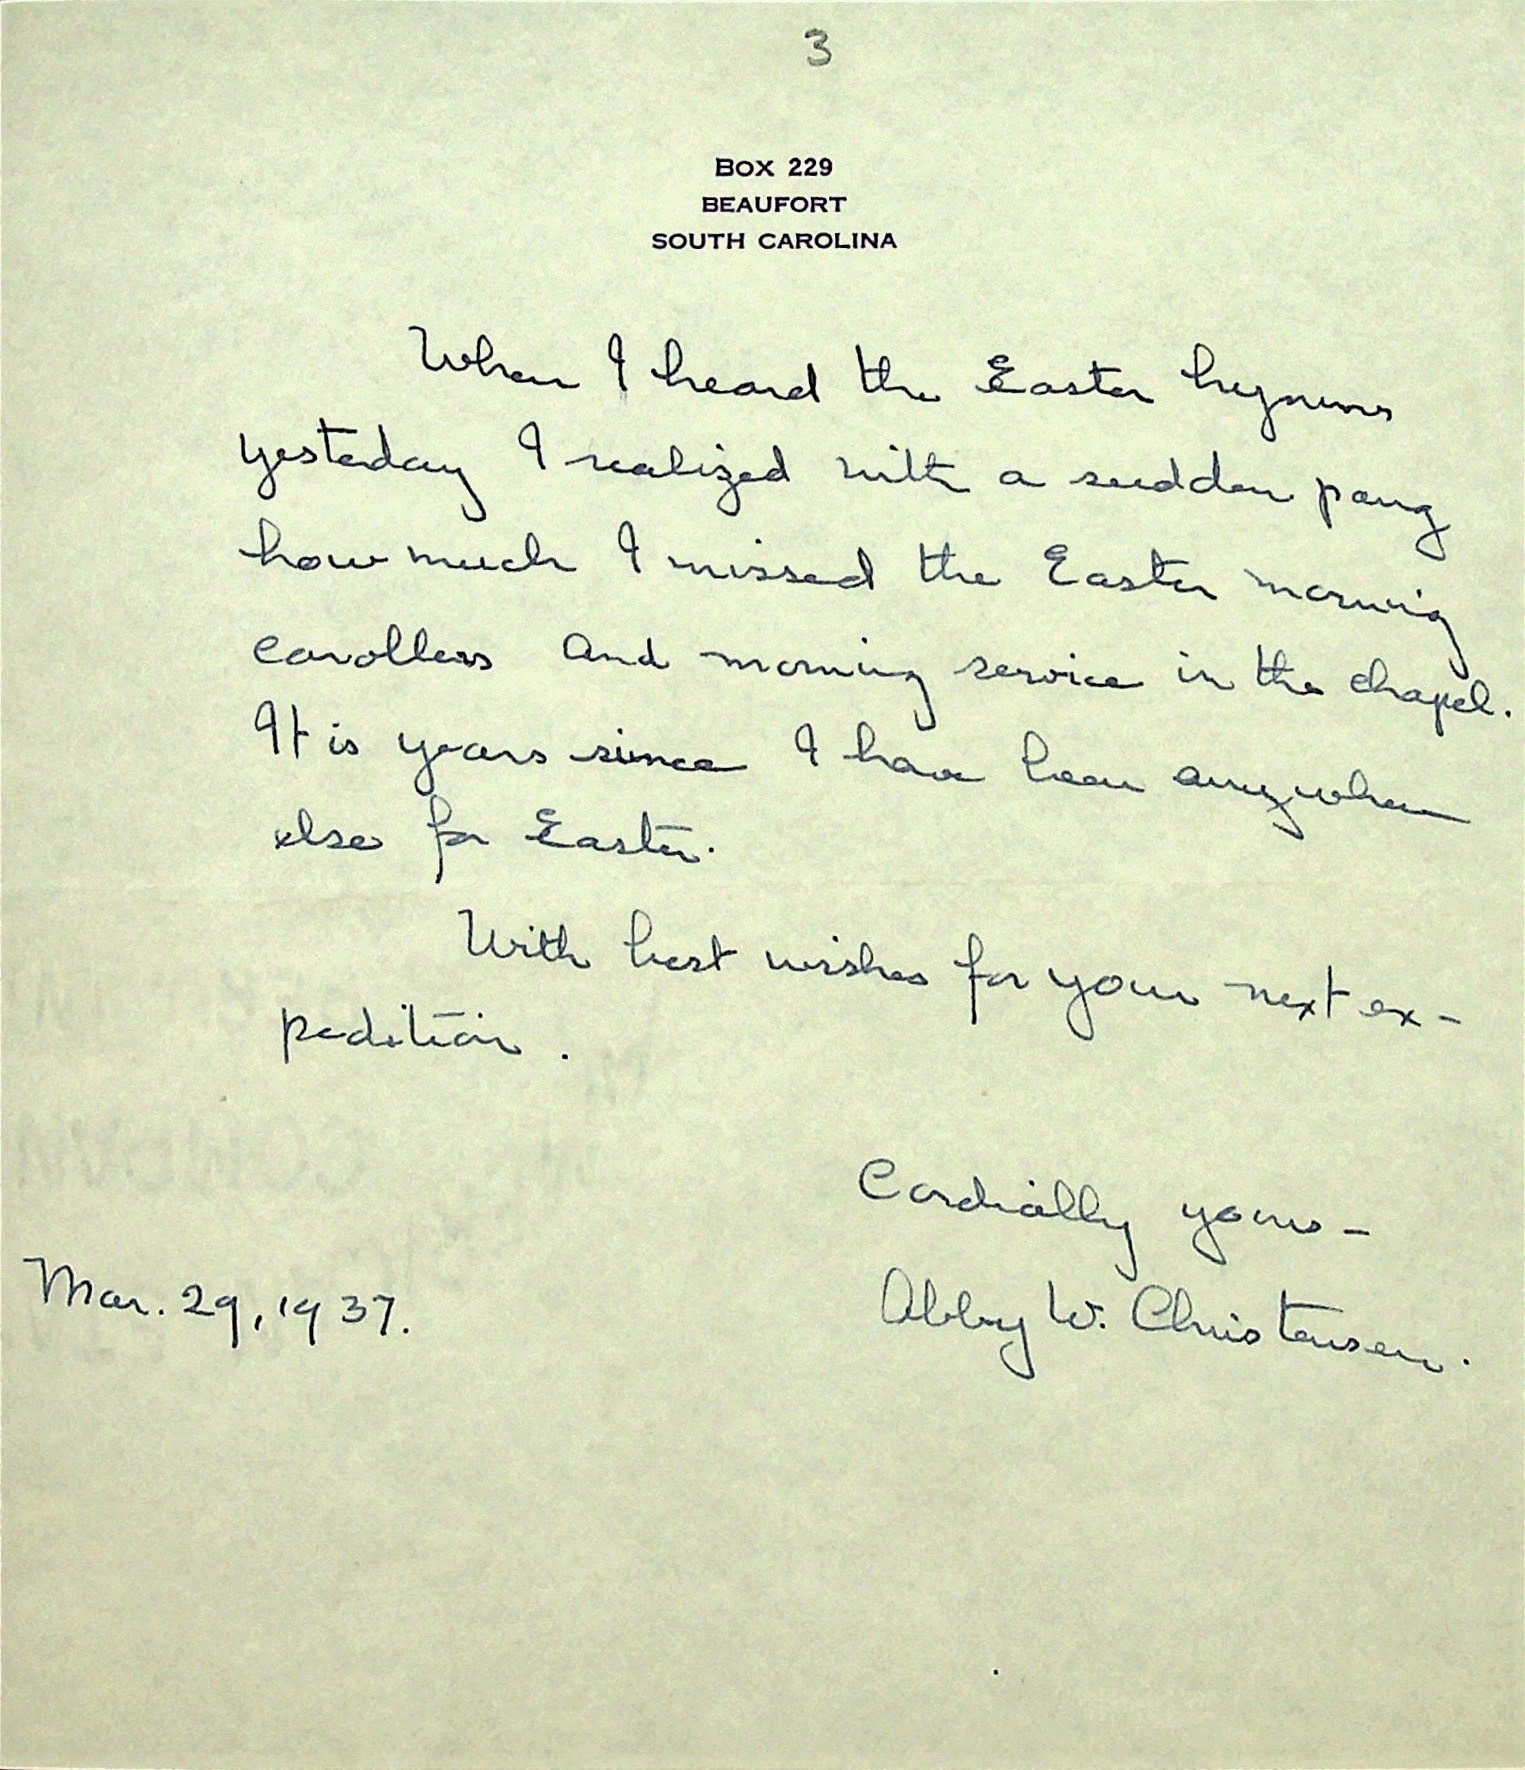 3
BOX 229
BEAUFORT
SOUTH CAROLINA
When I heard the Easter hymns
yesterday I realized with a sudden pang
how much I missed the Easter morning
carollers and morning service in the chapel.
It is years since I have been anywhere
else for Easter.
With best wishes for your next ex-
pedition.
Cordially yours -
Mar. 29, 1937.
Abby W. Christensen.